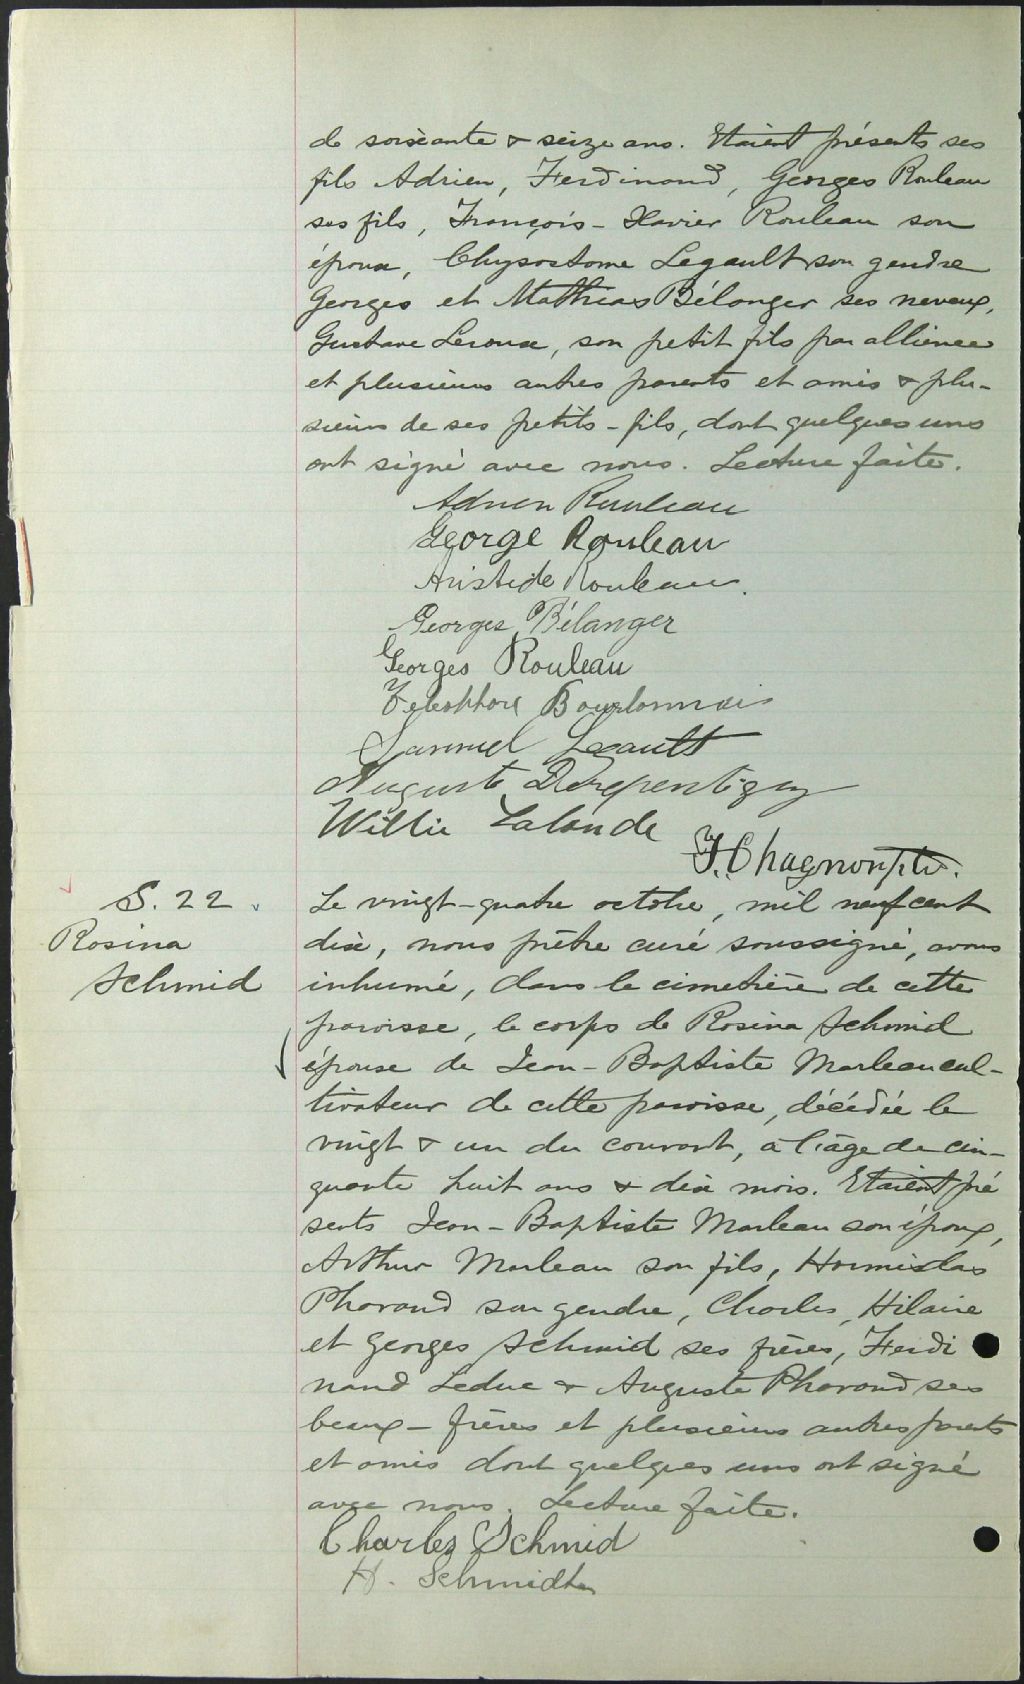 de soixante & seize ans. Etaient présents ses
fils Adrien, Ferdinand, Georges Rouleau
ses fils, François-Xavier Rouleau son
époux, Chysostome Legault son gendre
Georges et Mathias Bélanger ses neveux,
Gustave Leroux, son petit fils par alliance
et plusieurs autres parents et amis & plu-
sieurs de ses petits-fils, dont quelques uns
ont signé avec nous. Lecture faite.
Adrien Rouleau
George Rouleau
Aristide Rouleau.
Georges Bélanger
Georges Rouleau
Telesphore Bourbonnais
Samuel Legault
Auguste Derepentigny
Willie Lalonde
J. Chagnon, ptre.
S. 22
Rosina
Schmid
Le vingt-quatre octobre, mil neuf cent
dix, nous prêtre curé soussigné, avons
inhumé, dans le cimetière de cette
paroisse, le corps de Rosina Schmid
épouse de Jean-Baptiste Marleau cul-
tivateur de cette paroisse, décédée le
vingt & un du courant, à l'âge de cin-
quante huit ans & dix mois. Etaient pré
sents Jean-Baptiste Marleau son époux,
Arthur Marleau son fils, Hormisdas
Pharand son gendre, Charles, Hilaire
et Georges Schmid ses frères, Ferdi
nand Leduc & Auguste Pharand ses
beaux-frères et plusieurs autres parents
et amis dont quelques uns ont signé
avec nous. Lecture faite.
Charles Schmid
H. Schmidt